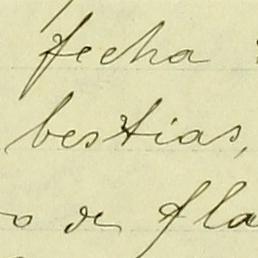 fecha
bestias,
o de fla